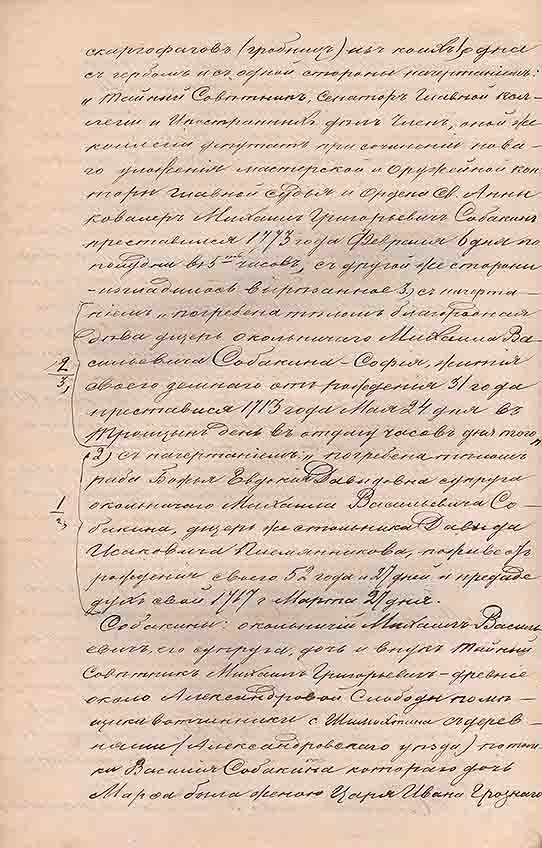 скаргофаговъ (гробницъ) изъ коихъ 1) одна
съ гербомъ и съ одной стороны начертаніемъ:
„Тайный Совѣтникъ, Сенаторъ Главной Кол-
легіи и Иностранныхъ дѣлъ Членъ, оной же
депутатъ при сочиненіи нова-
го уложенія мастерской и Оружейной кон-
торы главной судья и Ордена Св. Анны
ковалеръ Михаилъ Григорьевичъ Собакинъ
преставился 1773 года Февраля 6 дня по
полудни въ 5 часовъ, съ другой же стороны
изгладилось вырѣзанное 3) съ начерта-
ніемъ „погребена тѣломъ благородная
дѣва дщерь окольничаго Михаила Ва-
сильевича Собакина – Софія, житія
своего земнаго отъ рожденія 31 года
преставися 1713 года Мая 24 дня въ
Троицынъ день въ отдачу часовъ дня того„
2
3)
(2) съ начертаніемъ „погребена тѣломъ
раба Божья Евдокія Давидовна супруга
окольничаго Михаила Васильевича Со-
1
2)
бакина, дщерь же стольника Давида
Исаковича Племянникова, поживе отъ
рожденія своего 52 года и 27 дней и предаде
духъ свой 1717 г Марта 27 дня.
Собакины: окольничій Михаилъ Василь-
евичъ, его супруга, дочь и внукъ Тайный
Совѣтникъ Михаилъ Григорьевичъ – древніе
около Александровой Слободы помѣ-
щики вотчинники с съ дерев-
нями (Александровскаго уѣзда) потом-
ки Василія Собакина котораго дочь
Марфа была женою Царя Ивана Грознаго